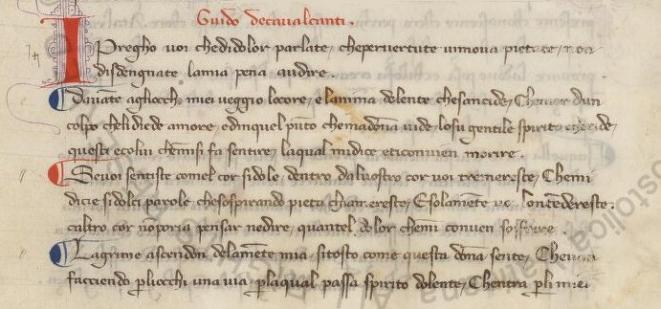 Guido decaualcanti.
I Pregho uoi chedidolor parlate, cheperuertute uinoua pietate, non
disdengnate lamia pena audire.
Dauāte agliocchi miei ueggio locore, e lanima dolente chesancide, Chemor dun
colpo chelidiede amore, edinquel pūto chemadōna uide, losu gentile spirito cheride,
questi ecolui chemisi fa sentire, laqual midice eticonuien morire.
Seuoi sentiste comel cor sidole, dentro dalvostro cor uoi tremereste, Chemi
dicie sidolci parole, chesospirando pieta chiamereste, Esolamēte uoi lontendereste.
caltro cor nōporia pensar nedire, quantel dolor chemi conuen sofferire.
Lagrime ascendon delamēte mia, sitosto come questa dōna sente, Chevan
faccendo pliocchi una uia, plaqual passa spirito dolente, Chentra pli miei
ostolica